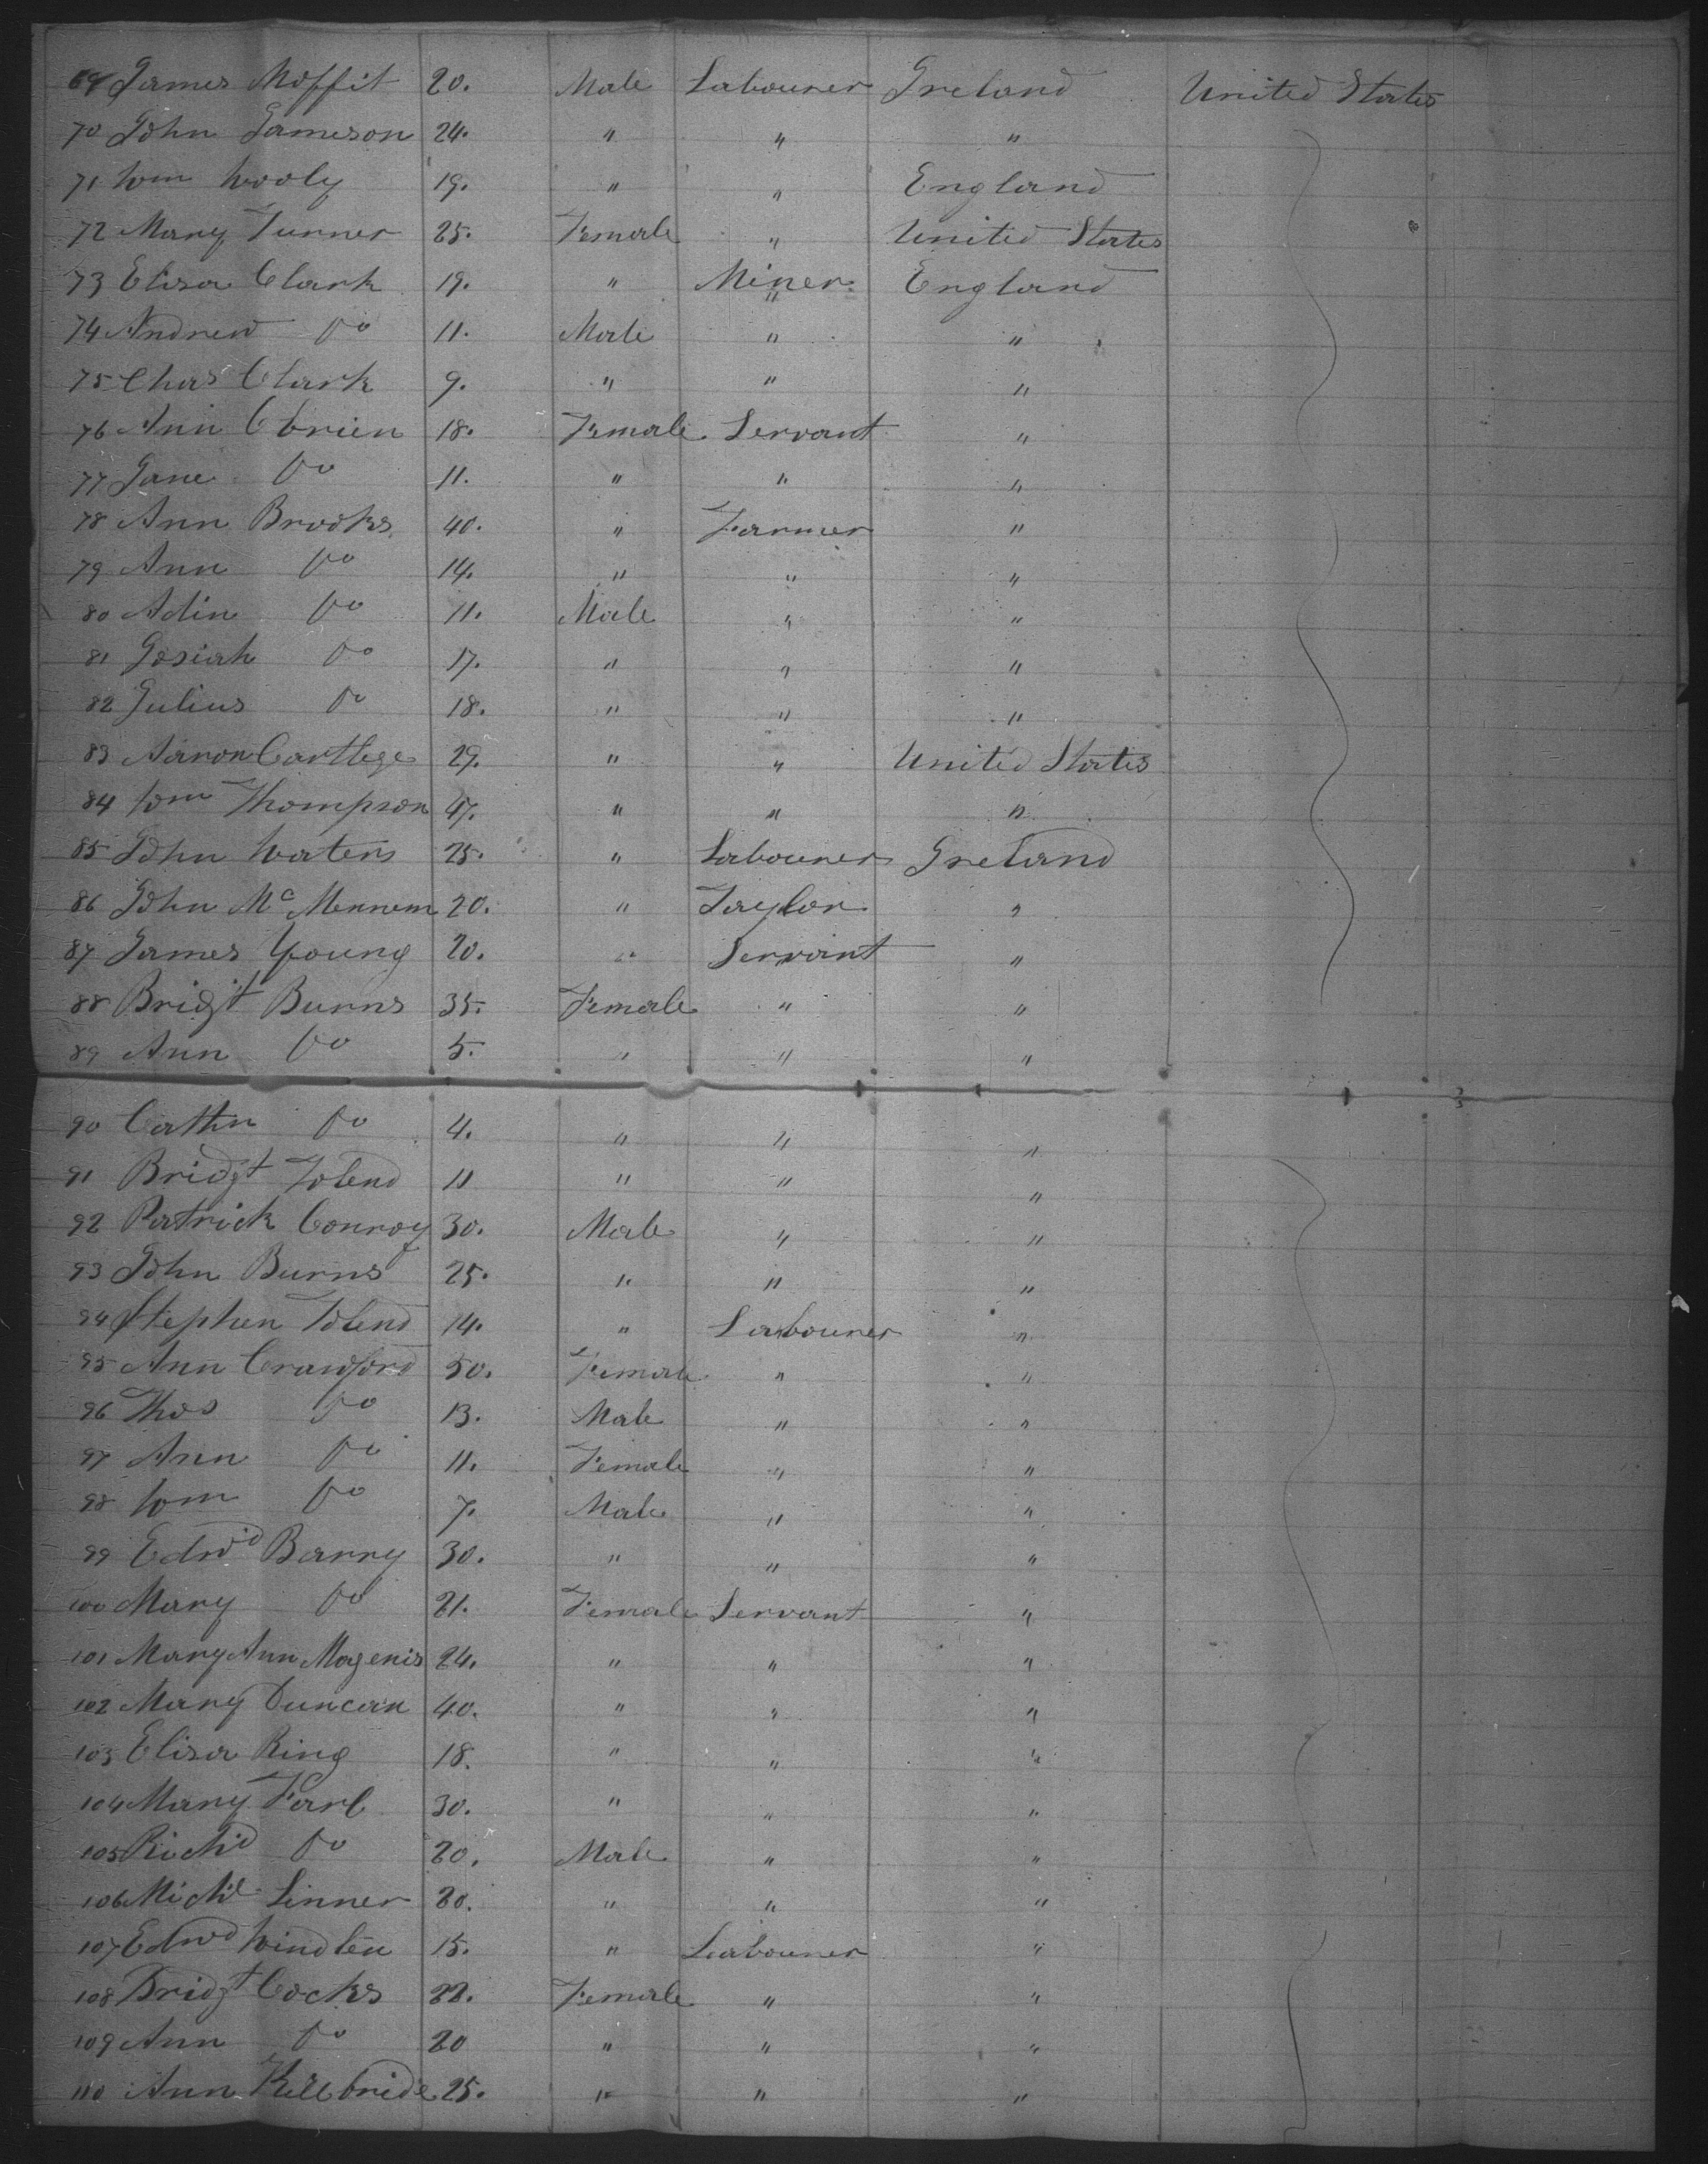 69 James Moffit 20. Male Labourer Ireland United States
70 John Jameson 24. " " "
71 Wm Wooly 19. " " England
72 Mary Turner 25. Female " United States
73 Elisa Clark 19. " Miner " England
74 Andrew Do 11. Male " "
75 Chas Clark 9. " " "
76 Ann Obrien 18. Female Servant "
77 Jane Do 11. " " "
78 Ann Brooks 40. " Farmer "
79 Ann Do 14. " " "
80 Adin Do 11. Male " "
81 Josiah Do 17. " " "
82 Julius Do 18. " " "
83 Aaron Cartlege 29. " " United States
84 Wm Thompson 47. " " "
85 John Waters 25. " Labourer Ireland
86 John Mc Mennem 20. " Taylor "
87 James Young 20. " Servant "
88 Bridgt Burns 35. Female " "
89 Ann Do 5. " " "
90 Cathn Do 4. " " "
91 Bridgt Tolend 11 " " "
92 Patrick Conroy 30. Male " "
93 John Burns 25. " " "
94 Stephen Tolend 14. " Labourer "
95 Ann Crawford 50. Female " "
96 Thos Do 13. Male " "
97 Ann Do 11. Female " "
98 Wm Do 7. Male " "
99 Edwd Barry 30. " " "
100 Mary Do 21. Female Servant "
101 Mary Ann Magenis 24. " " "
102 Mary Duncan 40. " " "
103 Elisa Ring 18. " " "
104 Mary Farl 30. " " "
105 Richd Do 20. Male " "
106 Michl Linner 20. " " "
107 Edwd Windlen 15. " Labourer "
108 Bridgt Cocks 22. Female " "
109 Ann Do 20 " " "
110 Ann Kilbride 25. " " "